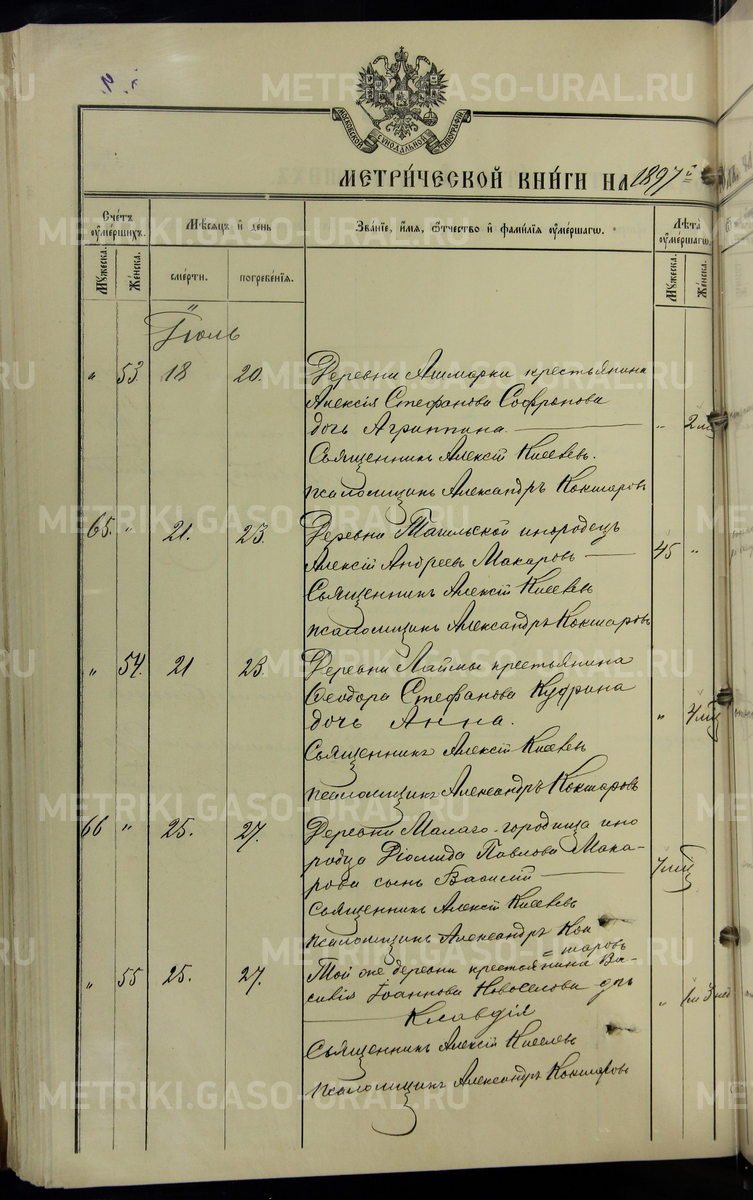 METRIKI.GASO-URAL.RU
МОСКОВСКОЙ СѴНОДАЛЬНОЙ ТИПОГРАФІИ
МЕТРИ́ЧЕСКОЙ КНИ́ГИ НА 1897й
Сче́тъ ᲂуме́ршихъ.
Мѣ́сѧцъ и҆ де́нь
Зва́нїе, и҆́мѧ, ѻ҆́тчество и҆ фами́лїѧ ᲂуме́ршагѡ.
Лѣ́та ᲂуме́ршагѡ.
Мꙋ́жеска.
Же́нска.
сме́рти.
погребе́нїѧ.
Мꙋ́жеска.
Же́нска.
Іюль
" 53 18 20. Деревни Ашмарки крестьянина
Алексія Стефанова Софронова
дочь Агриппина. " 2 мц
Священникъ Алексій Киселевъ.
псаломщикъ Александръ Кокшаровъ
65. " 21. 23. Деревни Тагильской инородецъ
Алексій Андреевъ Макаровъ 45 "
Священникъ Алексій Киселевъ
псаломщикъ Александръ Кокшаровъ
" 54. 21 23. Деревни Лаймы крестьянина
Ѳеодора Стефанова Кудрина
дочь Анна. " 4 мц
Священникъ Алексій Киселевъ
псаломщикъ Александръ Кокшаровъ
66 " 25. 27. Деревни Малаго-городища ино
родца Діомида Павлова Мака-
рова сынъ Василій 7 мц
Священникъ Алексій Киселевъ
псаломщикъ Александръ Кок
=шаровъ
" 55 25. 27. Той же деревни крестьянина Ва-
силія Іоаннова Новоселова дчь " 1 м 3 нед
Клавдія
Священникъ Алексій Киселевъ
псаломщикъ Александръ Кокшаровъ